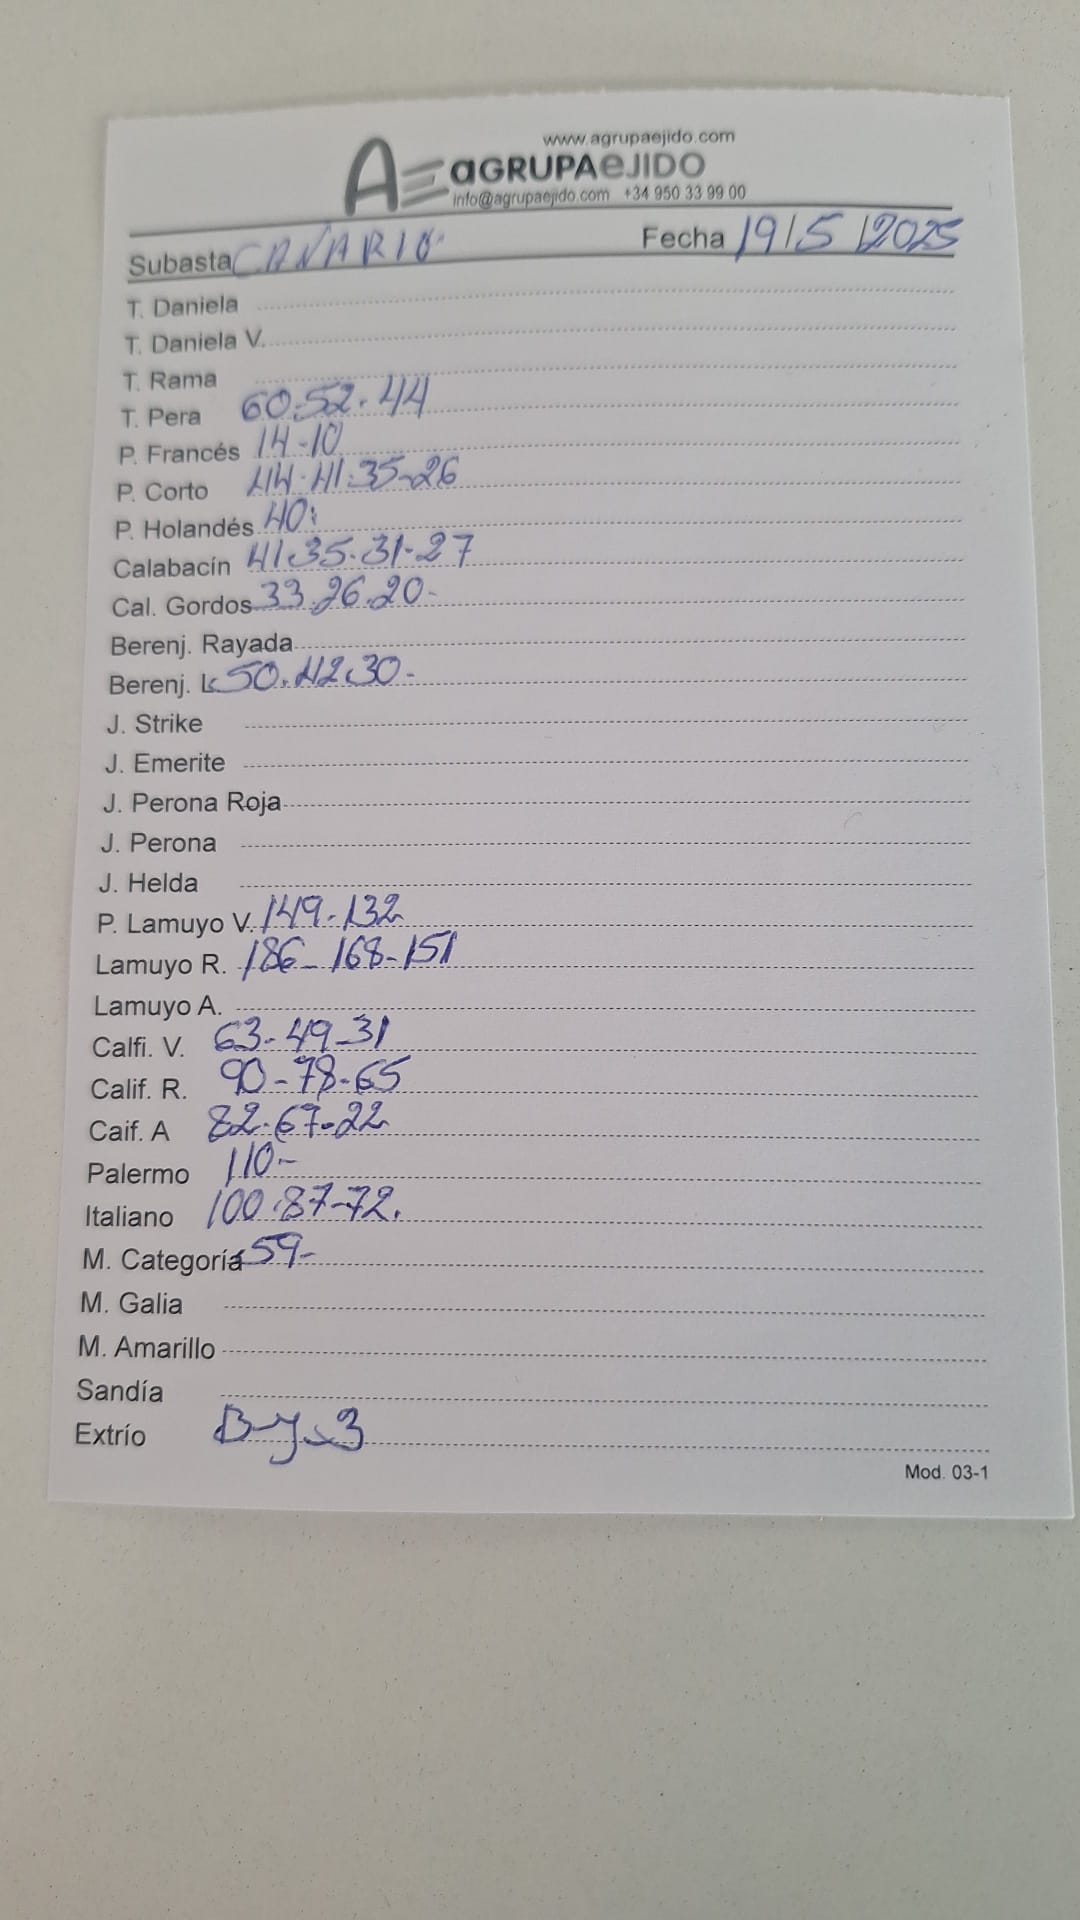 www.agrupaejido.com
AGRUPAEJIDO
info@agrupaejido.com +34 950 33 99 00
Subasta CANARIO Fecha 19/5/2025
T. Daniela
T. Daniela V.
T. Rama
T. Pera 60.52.44
P. Francés 14-10
P. Corto 44.41.35-26
P. Holandés 40.
Calabacín 41.35.31-27
Cal. Gordos 33.26.20-
Berenj. Rayada
Berenj. L 50.42.30-
J. Strike
J. Emerite
J. Perona Roja
J. Perona
J. Helda
P. Lamuyo V. 149-132
Lamuyo R. 186-168-151
Lamuyo A.
Calfi. V. 63-49-31
Calif. R. 90-78-65
Caif. A 82.67-22
Palermo 110-
Italiano 100.87-72.
M. Categoría 59-
M. Galia
M. Amarillo
Sandía
Extrío
Mod. 03-1